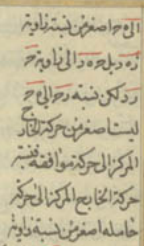 الى ح اصغر من نسبة زاوية
ه د الى زاوية ح
لكن نسبة الى ح
ليست اصغر من حركة الخارج
المركز الى حركة موافقه فنسبة
حركة الخارج المركز الى حركة
حامله اصغر من نسبة زاوية